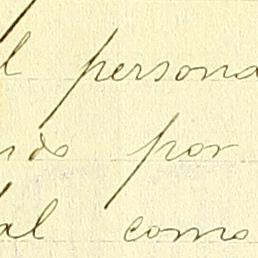 l persona
ndo por
al como